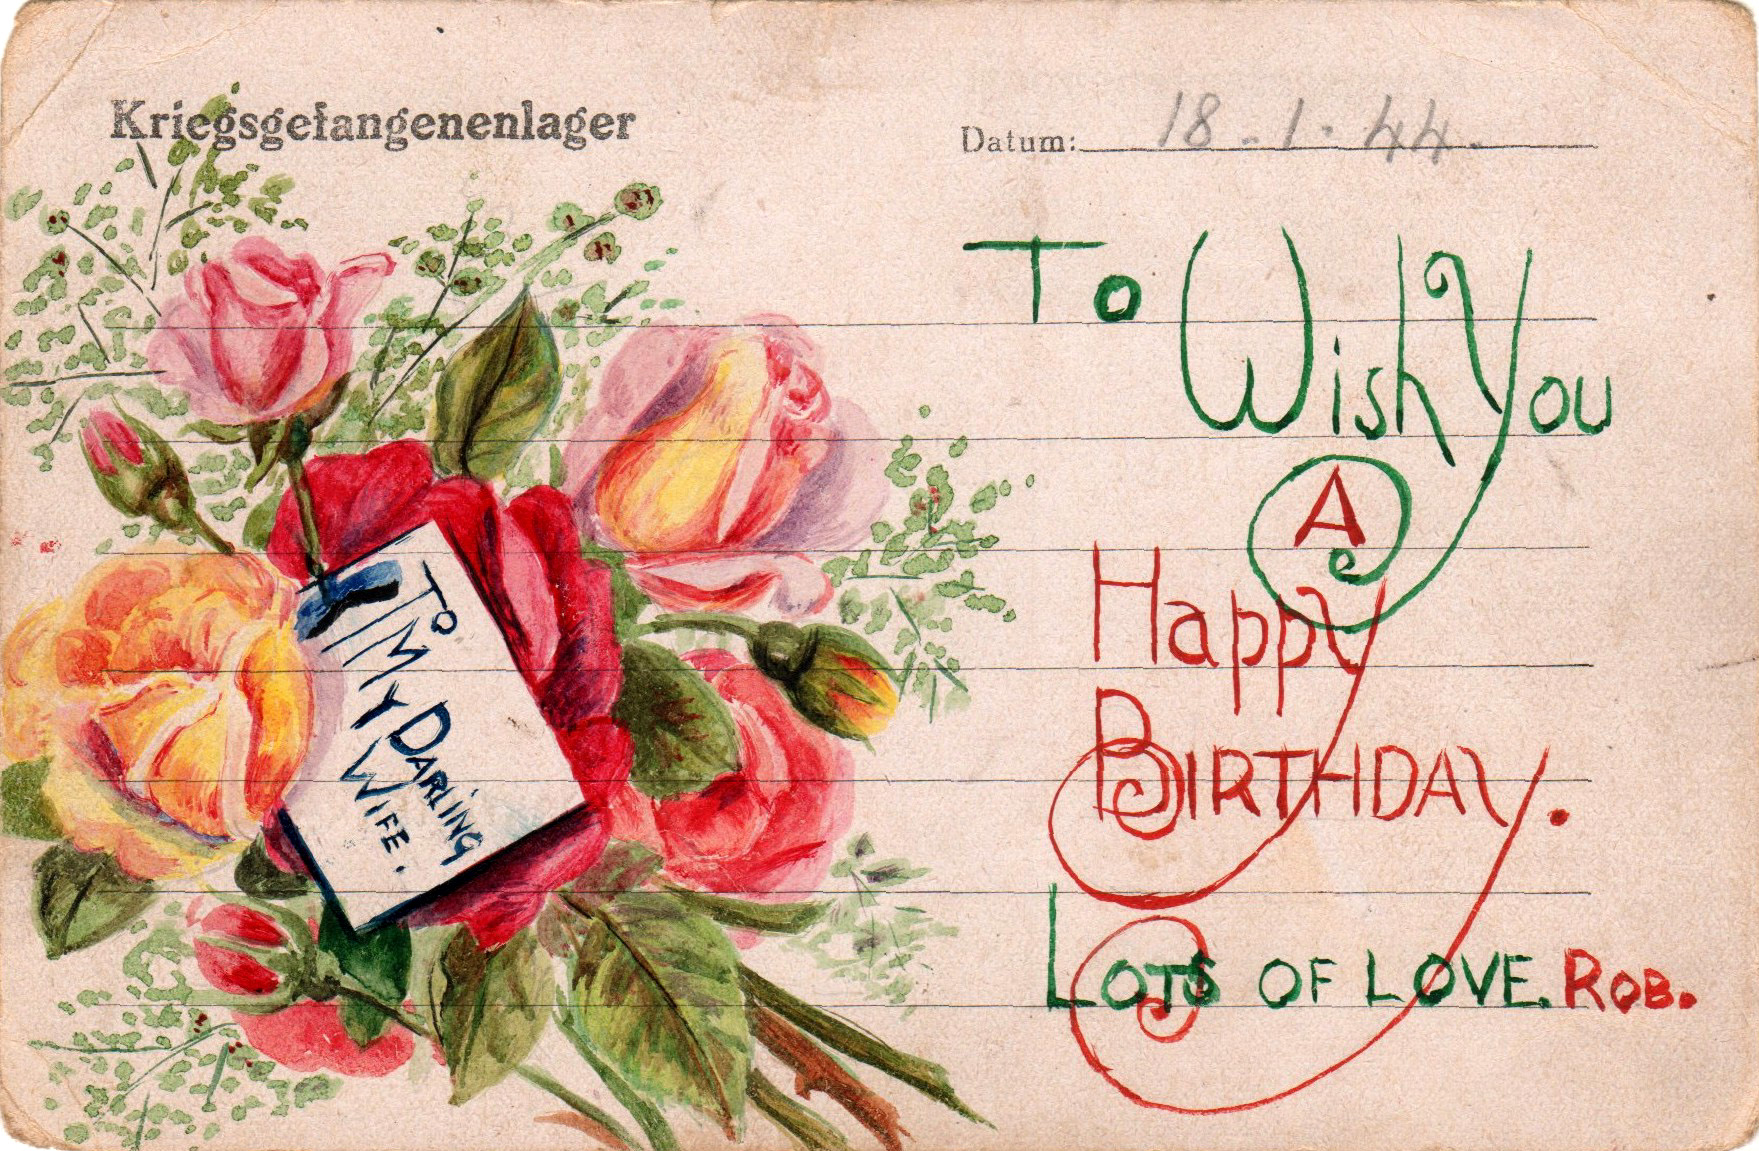 Kriegsgefangenenlager
Datum: 18.1.44.
To Wish You
A
Happy
BIRTHDAY.
LOTS OF LOVE. ROB.
TO
MY DARLING
WIFE.